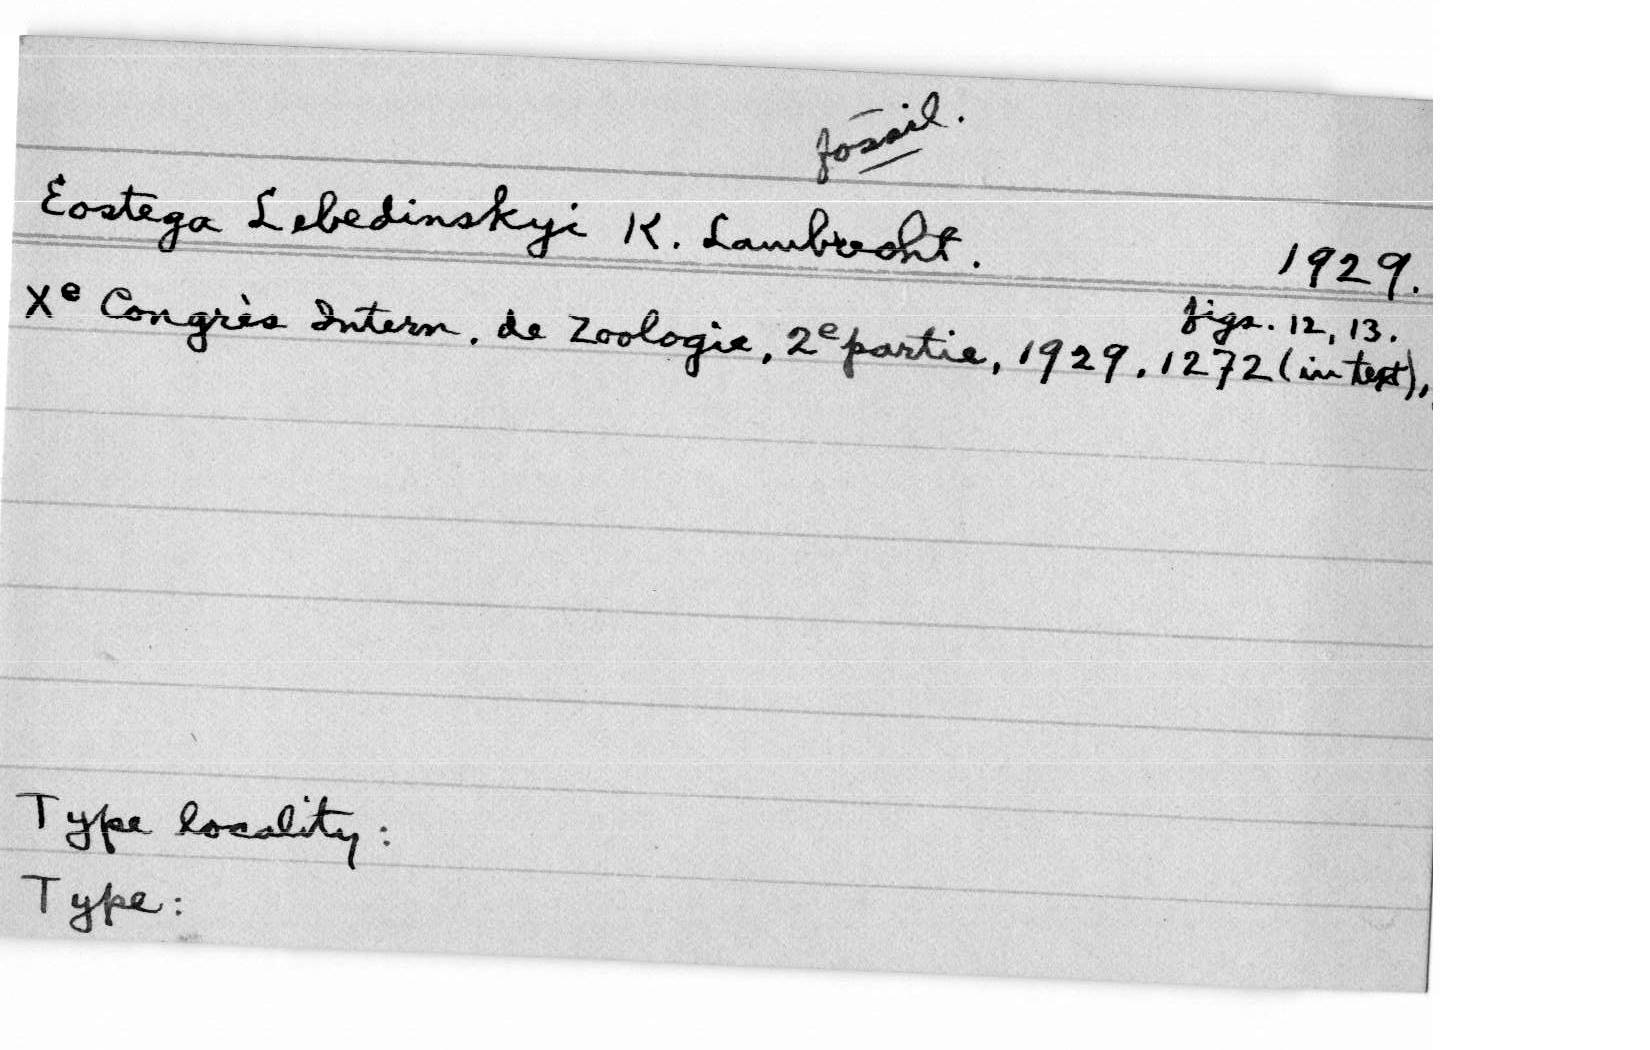 fossil.
Eostega Lebedinskyi K. Lambrecht. 1929.
figs. 12, 13.
Xe Congrès Intern. de Zoologie, 2e partie, 1929. 1272 (in text),
Type locality:
Type: